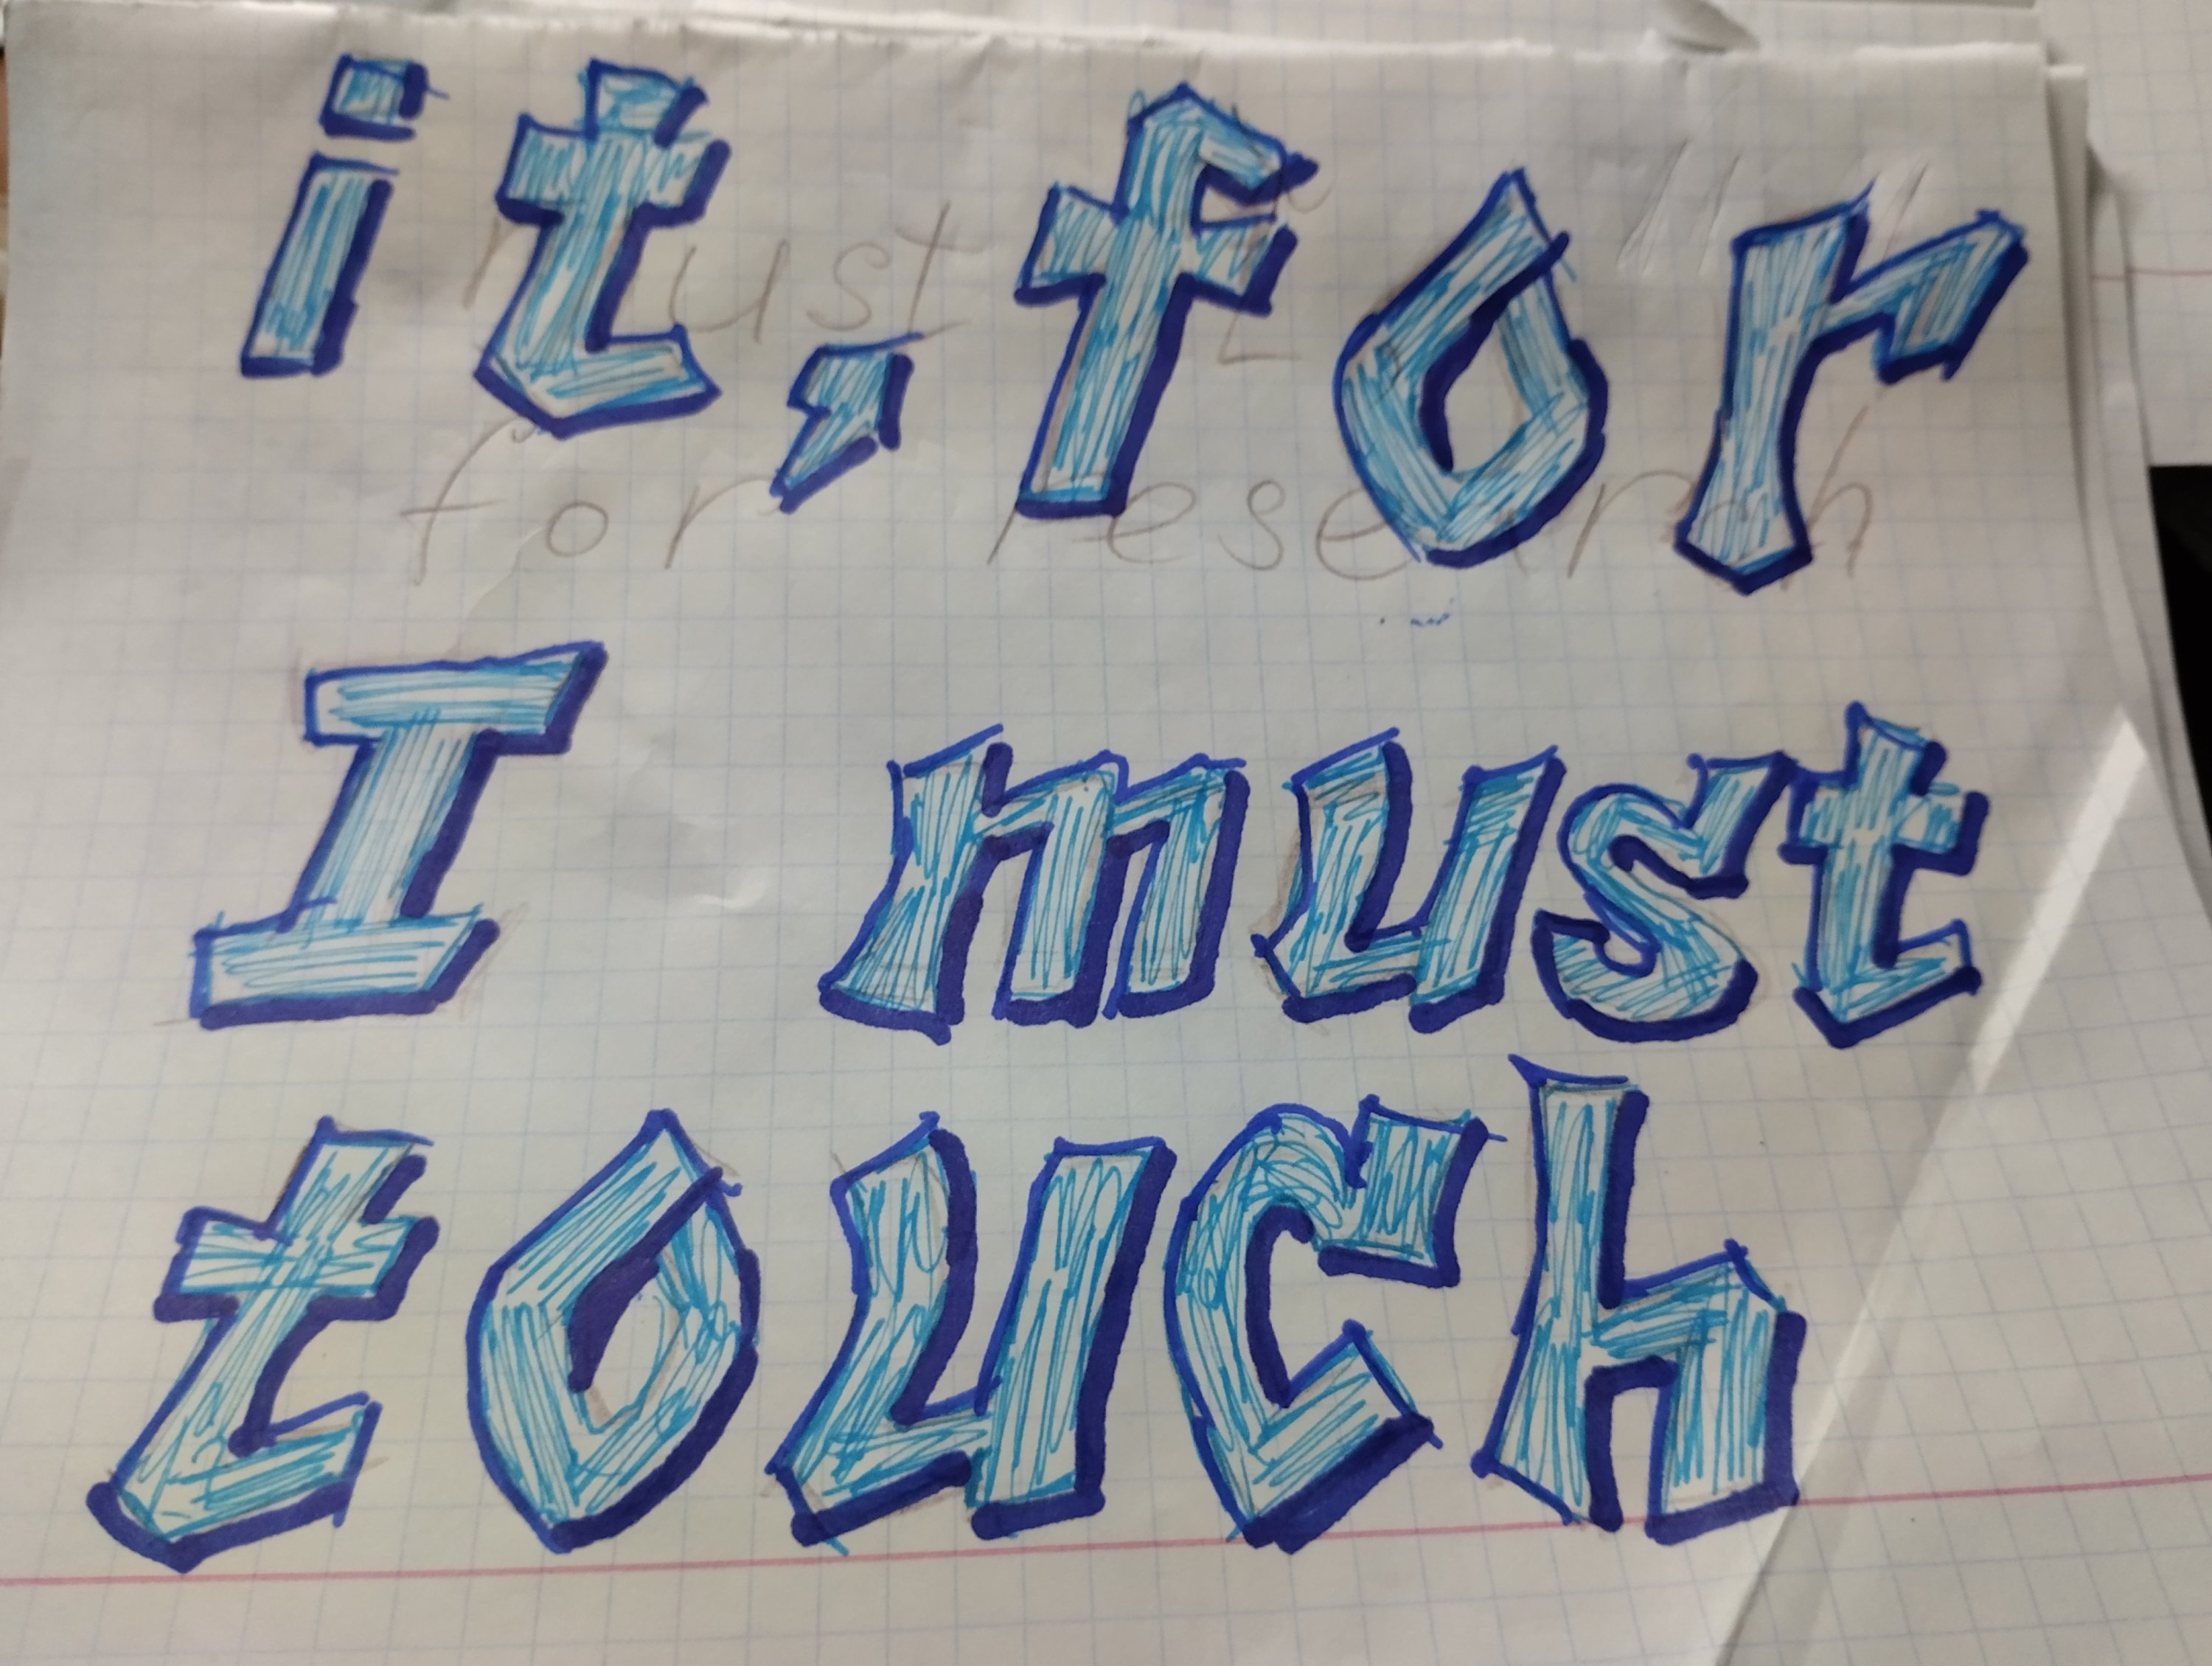 it, for
must I
for research
I must
touch